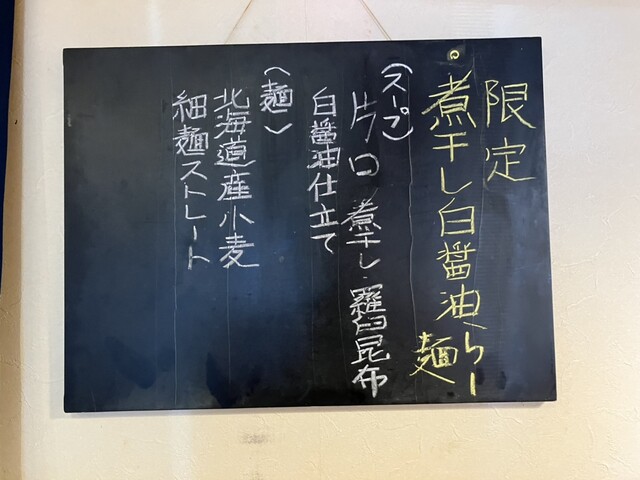 限定
・煮干し白醤油らー麺
(スープ)
片口煮干し・羅臼昆布
白醤油仕立て
(麺)
北海道産小麦
細麺ストレート